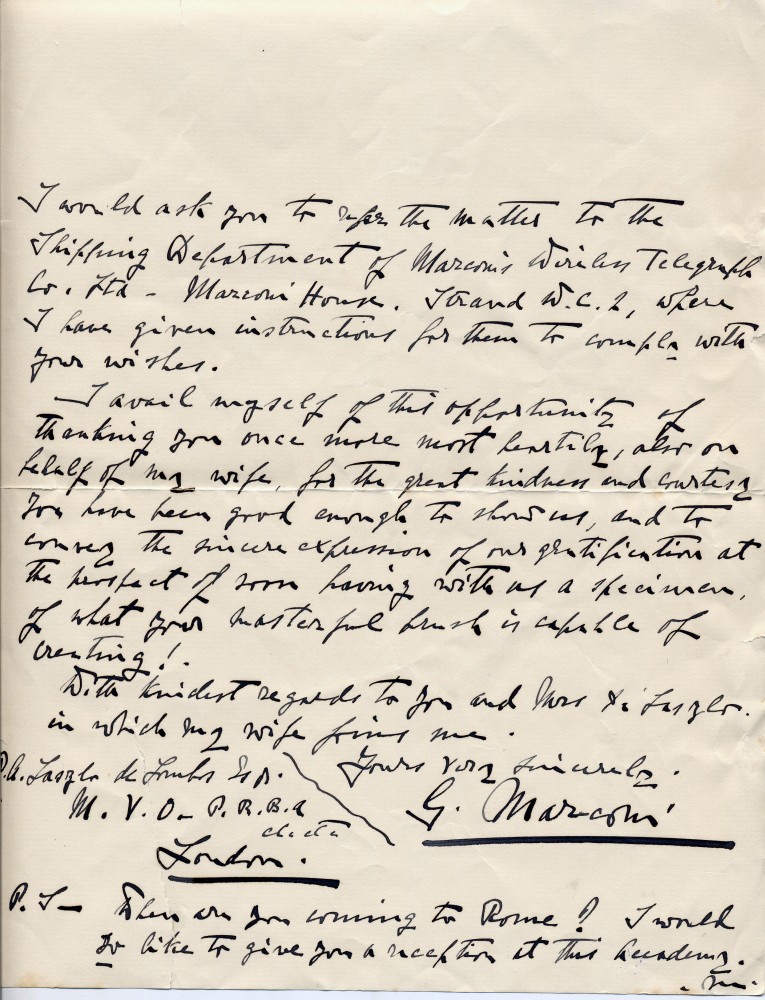 I would ask you to refer the matter to the
Shipping Department of Marconi's Wireless Telegraph
Co. Ltd - Marconi House. Strand W.C.2, where
I have given instructions for them to comply with
your wishes.
I avail myself of this opportunity of
thanking you once more most heartily, also on
behalf of my wife, for the great kindness and courtesy
you have been good enough to show us, and to
convey the sincere expression of our gratification at
the prospect of soon having with us a specimen,
of what your masterful brush is capable of
creating!
With kindest regards to you and Mrs de Laszlo.
in which my wife joins me.
Yours very sincerely.
G. Marconi
P.A. Laszlo de Lombos Esq.
M.V.O. P.R.B.A
elect
London.
P.S— When are you coming to Rome? I would
so like to give you a reception at this Academy.